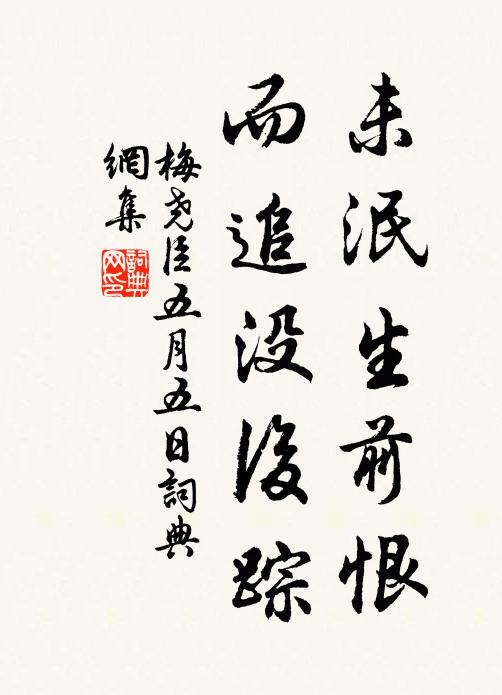 未泯生前恨
而追没後踪
梅尧臣五月五日詞典
網集
詞典
网印